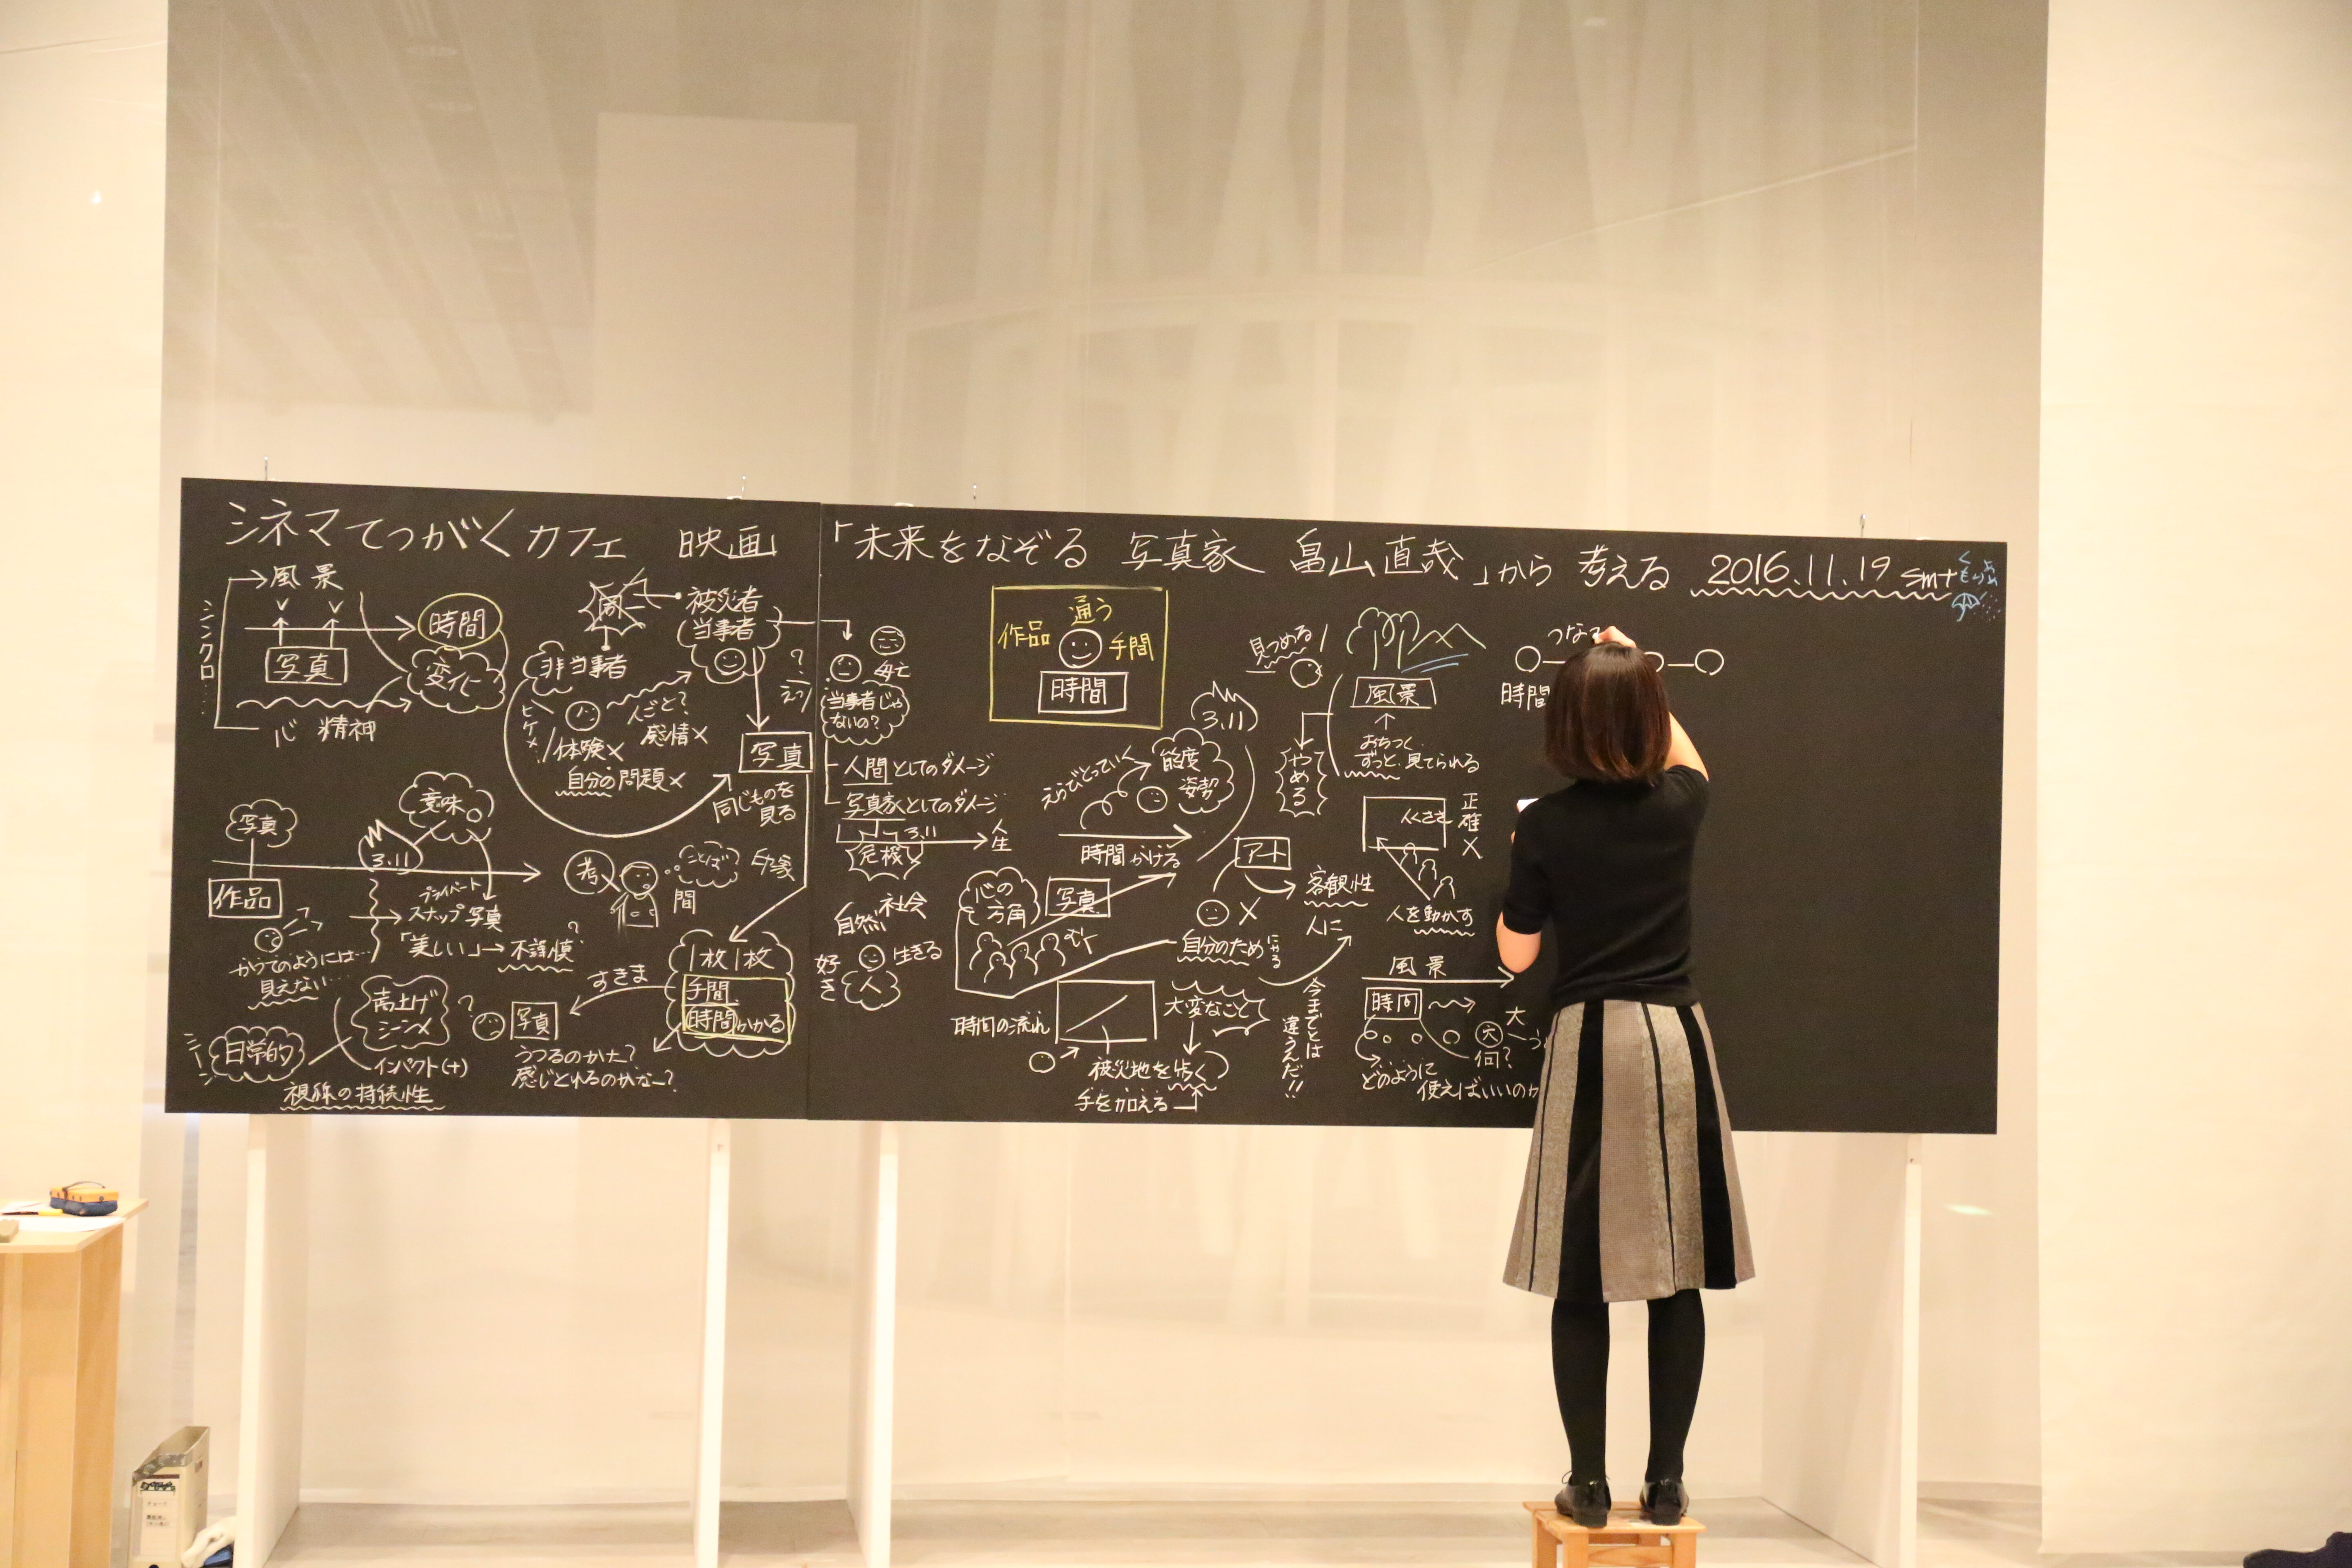 シネマてつがくカフェ 映画「未来をなぞる 写真家 畠山直哉」から考える 2016.11.19 smt
風景
シンクロ…
写真
時間
変化
心 精神
被災者
当事者
非当事者
人ごと?
体験×
感情×
自分の問題×
写真
同じものを
見る
写真
意味
3.11
作品
プライベート
スナップ写真
「美しい」→不謹慎?
かつてのようには…
見えない…
考
ことば
印象
間
1枚1枚
手間
時間かかる
すきま
写真
?
うつるのかな?
感じとれるのかなー?
インパクト(+)
視線の持続性
当事者じゃ
ないの?
人間としてのダメージ
写真家としてのダメージ
3.11
人生
危機
自然
社会
生きる
好き
人
通う
作品
手間
時間
えらびとっていく
態度
姿勢
3.11
時間かける
心の
方角
写真
アート
客観性
×
自分のため
人に
時間の流れ
大変なこと
被災地を歩く
手を加える
今までとは
違うんだ!!
見つめる
風景
おちつく
ずっと見てられる
やめる
正確×
人を動かす
風景
時間
何?
どのように
使えばいいのか
つなぐ
時間